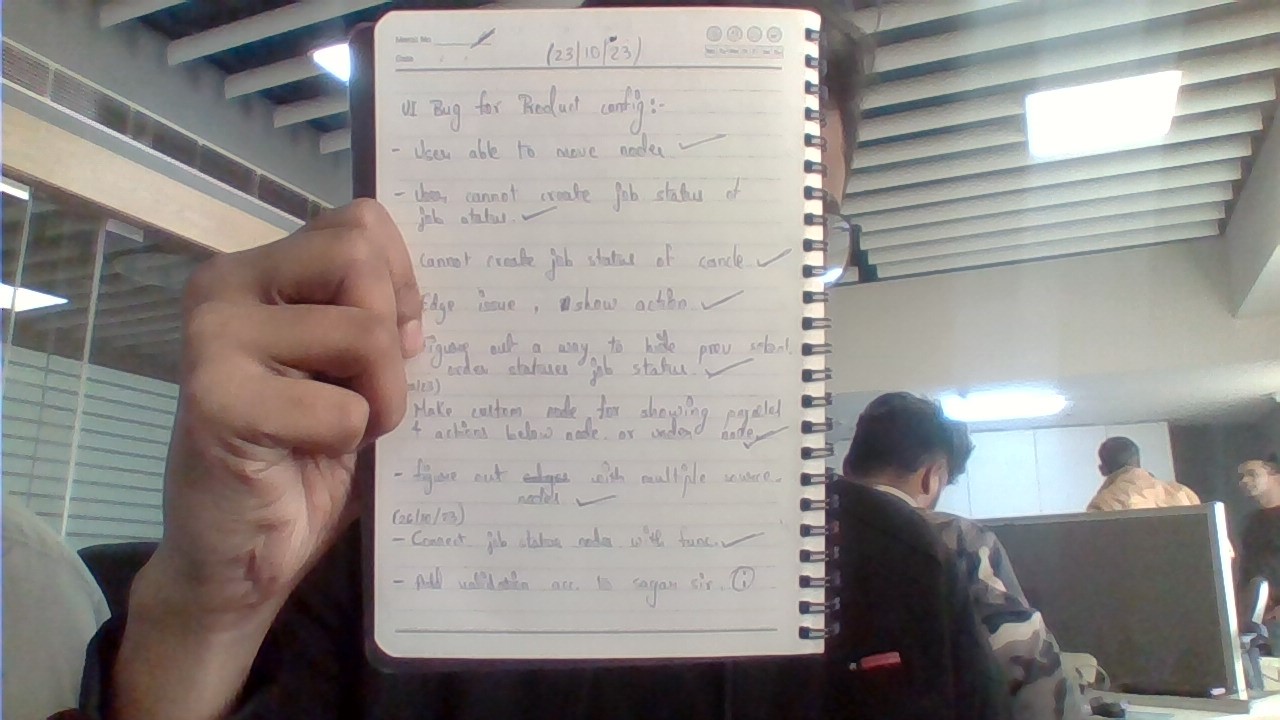 Memo No.
Date
(23/10/23)
UI Bug for Product config:-
- User able to move nodes ✓
- User cannot create job status of
job status. ✓
cannot create job status of cancle ✓
Edge issue, show action ✓
Figure out a way to hide prev select.
order statuses job status. ✓
/23)
Make custom node for showing parallel
+ actions below node or under node ✓
- figure out edges with multiple source
nodes ✓
(26/10/23)
- Connect job status nodes with func. ✓
- Add validation acc. to sagar sir.. i